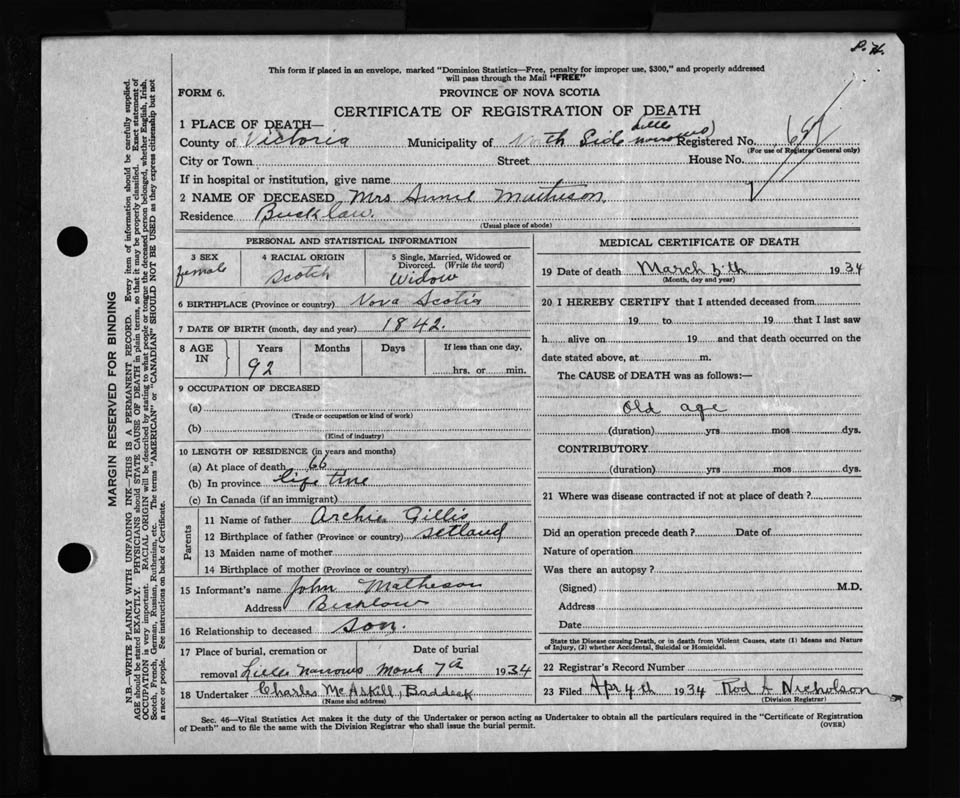 P. H.
This form if placed in an envelope, marked "Dominion Statistics—Free, penalty for improper use, $300," and properly addressed
will pass through the Mail "FREE"
FORM 6.
PROVINCE OF NOVA SCOTIA
CERTIFICATE OF REGISTRATION OF DEATH
1 PLACE OF DEATH—
County of Victoria Municipality of North Side Little Narrows Registered No.
(For use of Registrar General only)
City or Town Street House No.
If in hospital or institution, give name
2 NAME OF DECEASED Mrs Annie Matheson
Residence Bucklaw.
(Usual place of abode)
PERSONAL AND STATISTICAL INFORMATION
3 SEX
female
4 RACIAL ORIGIN
Scotch
5 Single, Married, Widowed or
Divorced. (Write the word)
Widow
6 BIRTHPLACE (Province or country) Nova Scotia
7 DATE OF BIRTH (month, day and year) 1842.
8 AGE IN
Years Months Days If less than one day,
92 hrs. or min.
9 OCCUPATION OF DECEASED
(a)
(Trade or occupation or kind of work)
(b)
(Kind of industry)
10 LENGTH OF RESIDENCE (in years and months)
(a) At place of death 66
(b) In province life time
(c) In Canada (if an immigrant)
Parents
11 Name of father Archie Gillis
12 Birthplace of father (Province or country) Setland
13 Maiden name of mother
14 Birthplace of mother (Province or country)
15 Informant's name John Matheson
Address Bucklow
16 Relationship to deceased Son.
17 Place of burial, cremation or Date of burial
removal Little Narrows March 7th 1934
18 Undertaker Charles McAskill, Baddeck
(Name and address)
MEDICAL CERTIFICATE OF DEATH
19 Date of death March 5th 1934
(Month, day and year)
20 I HEREBY CERTIFY that I attended deceased from
19 to 19 that I last saw
h alive on 19 and that death occurred on the
date stated above, at m.
The CAUSE of DEATH was as follows:—
Old age
(duration) yrs mos dys.
CONTRIBUTORY
(duration) yrs mos dys.
21 Where was disease contracted if not at place of death?
Did an operation precede death? Date of
Nature of operation
Was there an autopsy?
(Signed) M.D.
Address
Date
State the Disease causing Death, or in death from Violent Causes, state (1) Means and Nature
of Injury, (2) whether Accidental, Suicidal or Homicidal.
22 Registrar's Record Number
23 Filed Apr 4th 1934 Rod A Nicholson
(Division Registrar)
Sec. 46—Vital Statistics Act makes it the duty of the Undertaker or person acting as Undertaker to obtain all the particulars required in the "Certificate of Registration
of Death" and to file the same with the Division Registrar who shall issue the burial permit.
(OVER)
MARGIN RESERVED FOR BINDING
N.B.—WRITE PLAINLY WITH UNFADING INK—THIS IS A PERMANENT RECORD. Every item of information should be carefully supplied.
AGE should be stated EXACTLY. PHYSICIANS should STATE CAUSE OF DEATH in plain terms, so that it may be properly classified. Exact statement of
OCCUPATION is very important. RACIAL ORIGIN will be described by stating to what people or tongue the deceased person belonged, whether English, Irish,
Scotch, French, German, Russian, Ruthenian, etc. The terms "AMERICAN" or "CANADIAN" SHOULD NOT BE USED as they express citizenship but not
a race or people. See instructions on back of Certificate.